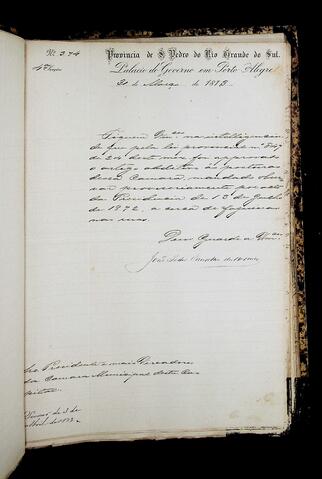 N. 374
4ª Secção
Provincia de S. Pedro do Rio Grande do Sul.
Palacio do Governo em Porto Alegre
31 de Março de 1873.
Fiquem Vmces na intelligencia
de que pela lei provincial n.
de 24 deste mez foi approvado
o artigo additivo ás posturas
dessa Camara, mandado obser-
var provisoriamente por acto
da Presidencia de 13 de Julho
de 1872, a cerca de fogueiras
nas ruas.
Deus Guarde a Vmces
João Pedro Carvalho de Moraes
Presidente e mais Vereadores
da Camara Municipal desta Ca-
pital.
de 3 de
Abril de 1873